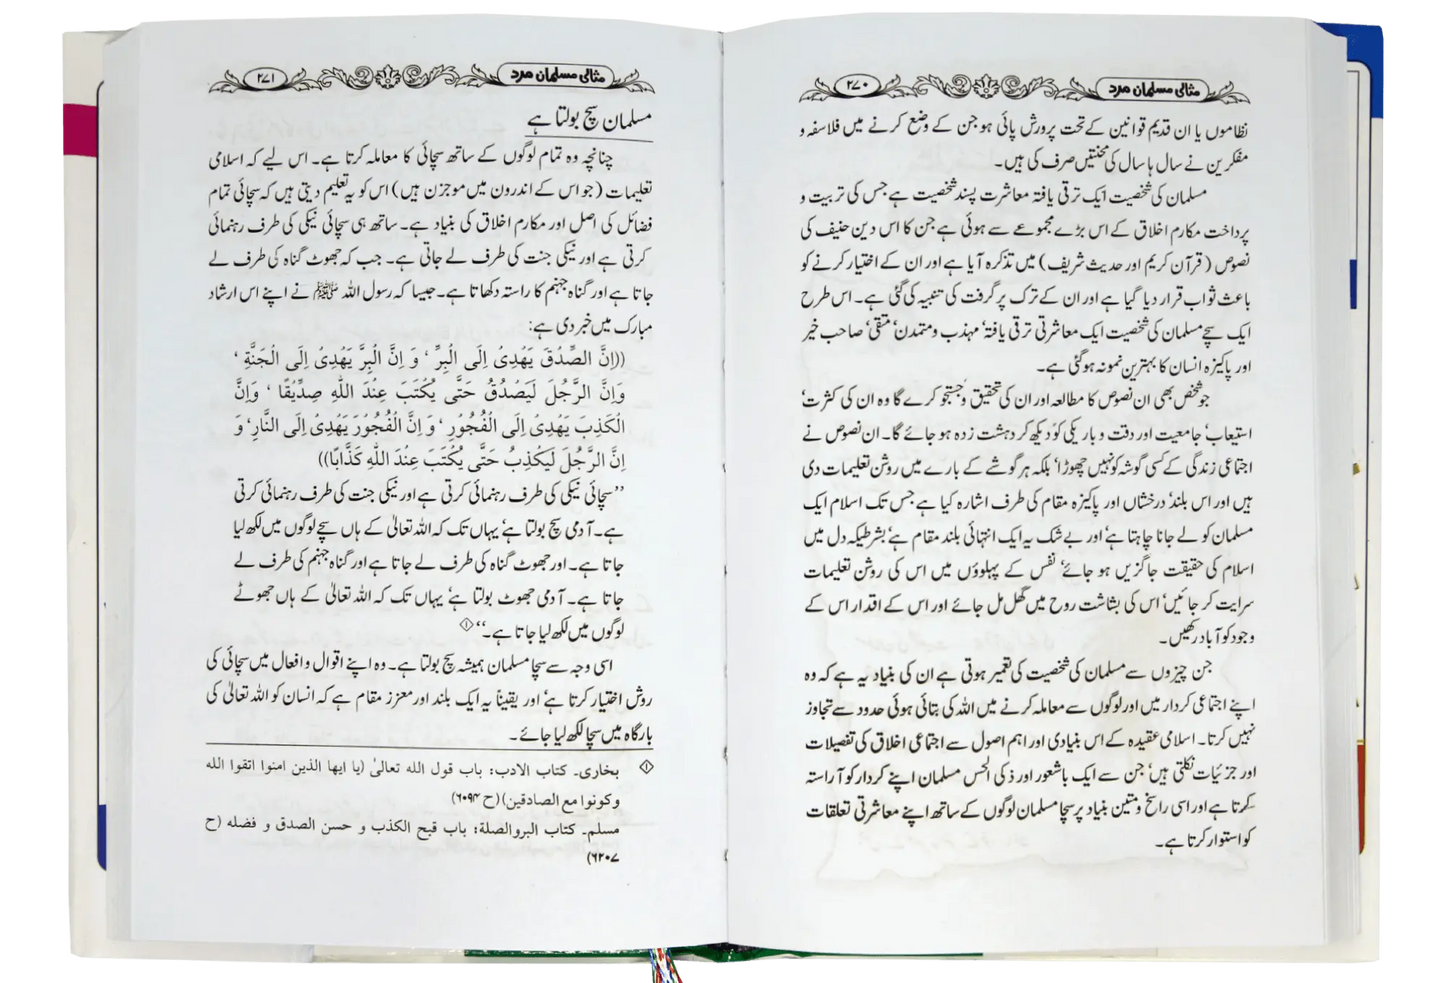 مثالی مسلمان مرد ۲۷۰
نظاموں یا ان قدیم قوانین کے تحت پرورش پائی ہو جن کے وضع کرنے میں فلاسفہ و
مفکرین نے سال ہا سال کی محنتیں صرف کی ہیں۔
مسلمان کی شخصیت ایک ترقی یافتہ معاشرت پسند شخصیت ہے جس کی تربیت و
پرداخت مکارم اخلاق کے اس بڑے مجموعے سے ہوئی ہے جن کا اس دین حنیف کی
نصوص (قرآن کریم اور حدیث شریف) میں تذکرہ آیا ہے اور ان کے اختیار کرنے کو
باعث ثواب قرار دیا گیا ہے اور ان کے ترک پر گرفت کی تنبیہ کی گئی ہے۔ اس طرح
ایک سچے مسلمان کی شخصیت ایک معاشرتی ترقی یافتہ' مہذب و متمدن' متقی' صاحب خیر
اور پاکیزہ انسان کا بہترین نمونہ ہو گئی ہے۔
جو شخص بھی ان نصوص کا مطالعہ اور ان کی تحقیق و جستجو کرے گا وہ ان کی کثرت'
استیعاب' جامعیت اور دقت و باریکی کو دیکھ کر دہشت زدہ ہو جائے گا۔ ان نصوص نے
اجتماعی زندگی کے کسی گوشہ کو نہیں چھوڑا' بلکہ ہر گوشے کے بارے میں روشن تعلیمات دی
ہیں اور اس بلند' درخشاں اور پاکیزہ مقام کی طرف اشارہ کیا ہے جس تک اسلام ایک
مسلمان کو لے جانا چاہتا ہے' اور بے شک یہ ایک انتہائی بلند مقام ہے' بشرطیکہ دل میں
اسلام کی حقیقت جاگزیں ہو جائے' نفس کے پہلوؤں میں اس کی روشن تعلیمات
سرایت کر جائیں' اس کی بشاشت روح میں گھل مل جائے اور اس کے اقدار اس کے
وجود کو آباد رکھیں۔
جن چیزوں سے مسلمان کی شخصیت کی تعمیر ہوتی ہے ان کی بنیاد یہ ہے کہ وہ
اپنے اجتماعی کردار میں اور لوگوں سے معاملہ کرنے میں اللہ کی بتائی ہوئی حدود سے تجاوز
نہیں کرتا۔ اسلامی عقیدہ کے اس بنیادی اور اہم اصول سے اجتماعی اخلاق کی تفصیلات
اور جزئیات نکلتی ہیں' جن سے ایک باشعور اور ذکی الحس مسلمان اپنے کردار کو آراستہ
کرتا ہے اور اسی راسخ و متین بنیاد پر سچا مسلمان لوگوں کے ساتھ اپنے معاشرتی تعلقات
کو استوار کرتا ہے۔
مثالی مسلمان مرد ۲۷۱
مسلمان سچ بولتا ہے
چنانچہ وہ تمام لوگوں کے ساتھ سچائی کا معاملہ کرتا ہے۔ اس لیے کہ اسلامی
تعلیمات (جو اس کے اندرون میں موجزن ہیں) اس کو یہ تعلیم دیتی ہیں کہ سچائی تمام
فضائل کی اصل اور مکارم اخلاق کی بنیاد ہے۔ ساتھ ہی سچائی نیکی کی طرف رہنمائی
کرتی ہے اور نیکی جنت کی طرف لے جاتی ہے۔ جب کہ جھوٹ گناہ کی طرف لے
جاتا ہے اور گناہ جہنم کا راستہ دکھاتا ہے۔ جیسا کہ رسول اللہ ﷺ نے اپنے اس ارشاد
مبارک میں خبر دی ہے:
((اِنَّ الصِّدْقَ يَهْدِىْ اِلَى الْبِرِّ' وَ اِنَّ الْبِرَّ يَهْدِىْ اِلَى الْجَنَّةِ'
وَاِنَّ الرَّجُلَ لَيَصْدُقُ حَتّٰى يُكْتَبَ عِنْدَ اللّٰهِ صِدِّيْقًا' وَاِنَّ
الْكَذِبَ يَهْدِىْ اِلَى الْفُجُوْرِ' وَ اِنَّ الْفُجُوْرَ يَهْدِىْ اِلَى النَّارِ' وَ
اِنَّ الرَّجُلَ لَيَكْذِبُ حَتّٰى يُكْتَبَ عِنْدَ اللّٰهِ كَذَّابًا))
''سچائی نیکی کی طرف رہنمائی کرتی ہے اور نیکی جنت کی طرف رہنمائی کرتی
ہے۔ آدمی سچ بولتا ہے' یہاں تک کہ اللہ تعالیٰ کے ہاں سچے لوگوں میں لکھ لیا
جاتا ہے۔ اور جھوٹ گناہ کی طرف لے جاتا ہے اور گناہ جہنم کی طرف لے
جاتا ہے۔ آدمی جھوٹ بولتا ہے' یہاں تک کہ اللہ تعالیٰ کے ہاں جھوٹے
لوگوں میں لکھ لیا جاتا ہے۔'' ۱
اسی وجہ سے سچا مسلمان ہمیشہ سچ بولتا ہے۔ وہ اپنے اقوال و افعال میں سچائی کی
روش اختیار کرتا ہے' اور یقیناً یہ ایک بلند اور معزز مقام ہے کہ انسان کو اللہ تعالیٰ کی
بارگاہ میں سچا لکھ لیا جائے۔
۱ بخاری۔ کتاب الادب: باب قول الله تعالیٰ (یا ایها الذین امنوا اتقوا الله
وکونوا مع الصادقین)(ح ۶۰۹۴)
مسلم۔ کتاب البروالصلة: باب قبح الکذب و حسن الصدق و فضله (ح
۶۲۰۷)